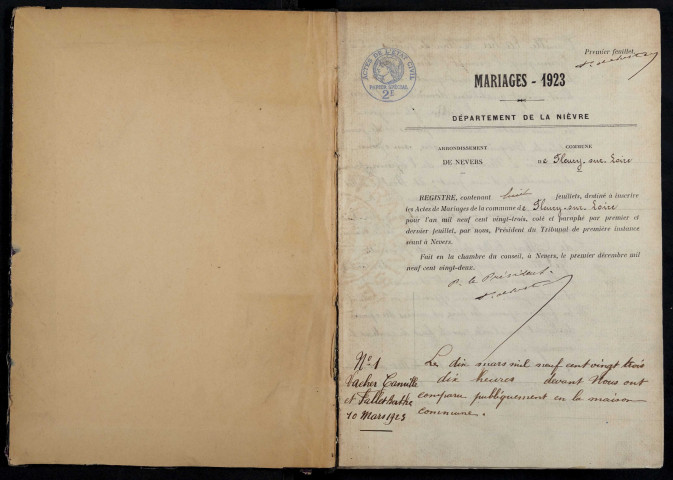 Premier feuillet.
ACTES DE L'ETAT CIVIL
PAPIER SPECIAL
2F
MARIAGES - 1923
DÉPARTEMENT DE LA NIÈVRE
ARRONDISSEMENT
DE NEVERS
COMMUNE
DE Fleury-sur-Loire
REGISTRE, contenant huit feuillets, destiné à inscrire
les Actes de Mariages de la commune de Fleury-sur-Loire
pour l'an mil neuf cent vingt-trois, coté et paraphé par premier et
dernier feuillet, par nous, Président du Tribunal de première instance
séant à Nevers.
Fait en la chambre du conseil, à Nevers, le premier décembre mil
neuf cent vingt-deux.
P. le Président.
N° 1
Vacher Camille
et Tallet Berthe
10 Mars 1923
Le dix mars mil neuf cent vingt trois
dix heures devant Nous ont
comparu publiquement en la maison
commune.